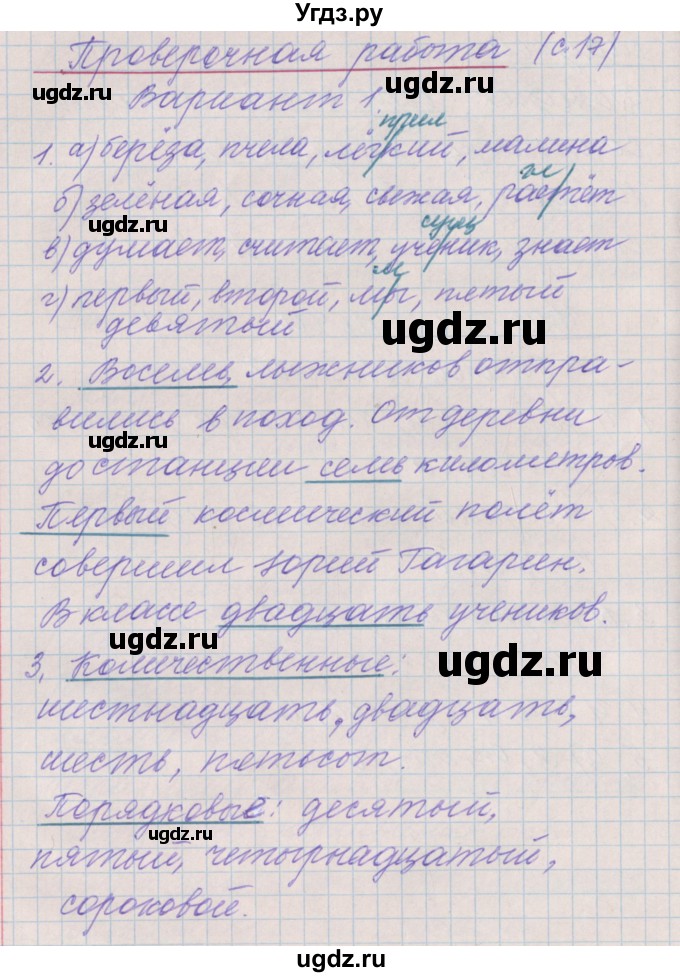 Угдз.ру
Проверочная работа (с.17)
ugdz.ru ugdz.ru
Вариант 1
прил
1. а) берёза, пчела, лёгкий, малина
гл
б) зелёная, сочная, свежая, растёт
ugdz.ru
сущ
в) думает, считает, ученик, знает
м
г) первый, второй, мы, пятый
девятый
ugdz.ru
2. Восемь лыжников отпра-
вились в поход. От деревни
ugdz.ru
до станции семь километров.
Первый космический полёт
совершил Юрий Гагарин.
В классе двадцать учеников.
ugdz.ru
3. Количественные:
ugdz.ru
шестнадцать, двадцать,
шесть, пятьсот.
Порядковые: десятый,
ugdz.ru
пятый, четырнадцатый,
сороковой.
ugdz.ru
ugdz.ru